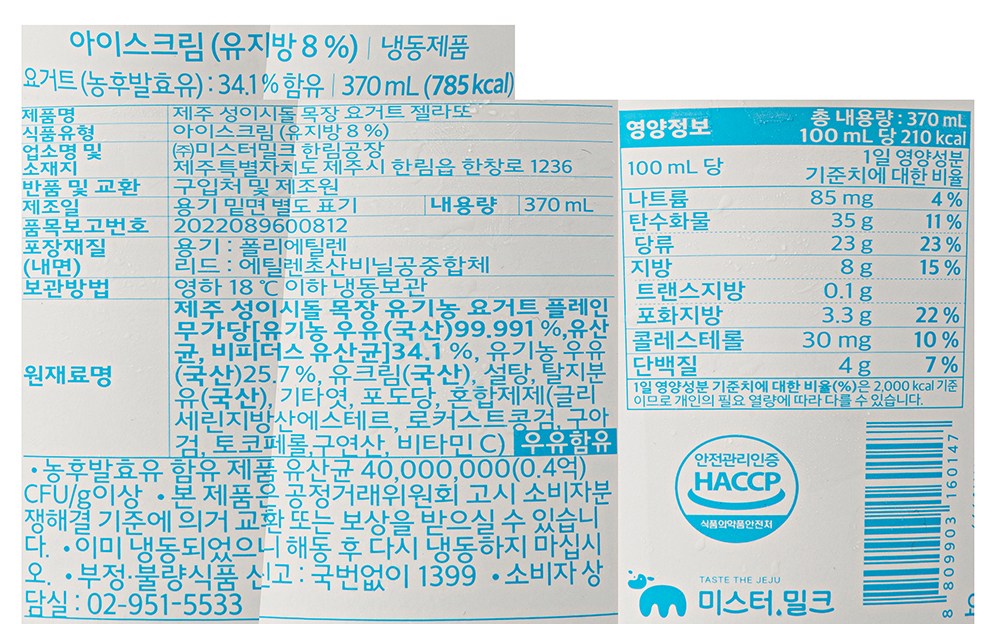 아이스크림 (유지방 8 %) | 냉동제품
요거트 (농후발효유) : 34.1% 함유 | 370 mL (785 kcal)
제품명 제주 성이시돌 목장 요거트 젤라또
식품유형 아이스크림 (유지방 8 %)
업소명 및 소재지 ㈜미스터밀크 한림공장
제주특별자치도 제주시 한림읍 한창로 1236
반품 및 교환 구입처 및 제조원
제조일 용기 밑면 별도 표기 내용량 370 mL
품목보고번호 2022089600812
포장재질 용기 : 폴리에틸렌
(내면) 리드 : 에틸렌초산비닐공중합체
보관방법 영하 18 ℃ 이하 냉동보관
원재료명
제주 성이시돌 목장 유기농 요거트 플레인
무가당[유기농 우유(국산)99.991 %,유산
균, 비피더스 유산균]34.1 %, 유기농 우유
(국산)25.7 %, 유크림(국산), 설탕, 탈지분
유(국산), 기타엿, 포도당, 혼합제제(글리
세린지방산에스테르, 로커스트콩검, 구아
검, 토코페롤,구연산, 비타민 C) 우유함유
•농후발효유 함유 제품 유산균 40,000,000(0.4억)
CFU/g이상 •본 제품은 공정거래위원회 고시 소비자분
쟁해결 기준에 의거 교환 또는 보상을 받으실 수 있습니
다. •이미 냉동되었으니 해동 후 다시 냉동하지 마십시
오. •부정·불량식품 신고 : 국번없이 1399 •소비자 상
담실 : 02-951-5533
영양정보 총 내용량 : 370 mL
100 mL 당 210 kcal
100 mL 당 1일 영양성분
기준치에 대한 비율
나트륨 85 mg 4 %
탄수화물 35 g 11 %
당류 23 g 23 %
지방 8 g 15 %
트랜스지방 0.1 g
포화지방 3.3 g 22 %
콜레스테롤 30 mg 10 %
단백질 4 g 7 %
1일 영양성분 기준치에 대한 비율(%)은 2,000 kcal 기준
이므로 개인의 필요 열량에 따라 다를 수 있습니다.
안전관리인증
HACCP
식품의약품안전처
TASTE THE JEJU
미스터.밀크
8 809903 160147